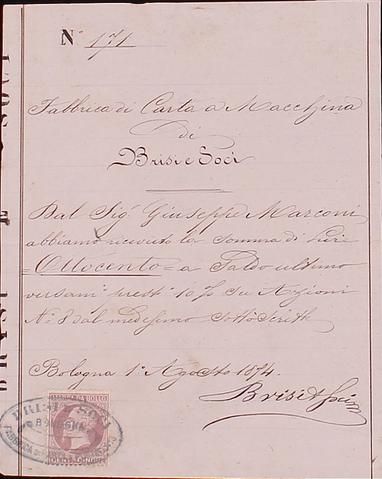 N° 171
Fabbrica di Carta a Macchina
di
Brisi e Soci
Dal Sigr Giuseppe Marconi
abbiamo ricevuto la somma di Lire
=Ottocento= a Saldo ultimo
versamo prestto 10% su Azioni
N° 8 dal medesimo sottoscritte
Bologna 1° Agosto 1874.
Brisi e Soci
BRISI E SOCI
BOLOGNA